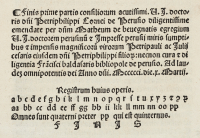 Finis prime partis consiliorum acutissimi. U.J. docto-
ris dñi Petriphilippi Cornei de Perusio diligentissime
emendate per dñm Matheum de benegnatis egregium
U.J. doctorem perusinũ ⁊ Impresse perusij miris sumpti-
bus ⁊ impensis magnificorũ virorum Petripauli ⁊ Julij
cesaris eiusdem dñi Petriphilippi filiorũ: necnon cura ⁊ di-
ligentia Francisci baldasaris bibliopole de perusio. Ad
laudes omnipotentis dei Anno dñi. Mcccccij. die. Martij.
Registrum huius operis.
a b c d e f g h i k l m n o p q r s t u x y z ⁊
aa bb cc dd ee ff gg hh ii kk ll mm nn oo pp
Omnes sunt quaterni preter pp qui est quinternus.
F I N I S